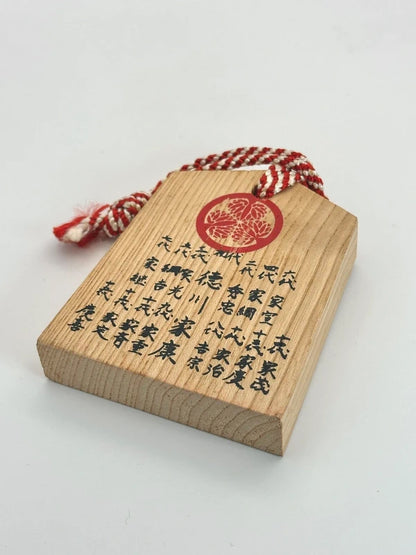 六代 家宣 十四代 家茂
四代 家綱 十二代 家慶
二代 秀忠 十代 家治
八代 吉宗
初代 徳川家康
三代 家光 九代 家重
五代 綱吉 十一代 家斉
七代 家継 十三代 家定
十五代 慶喜